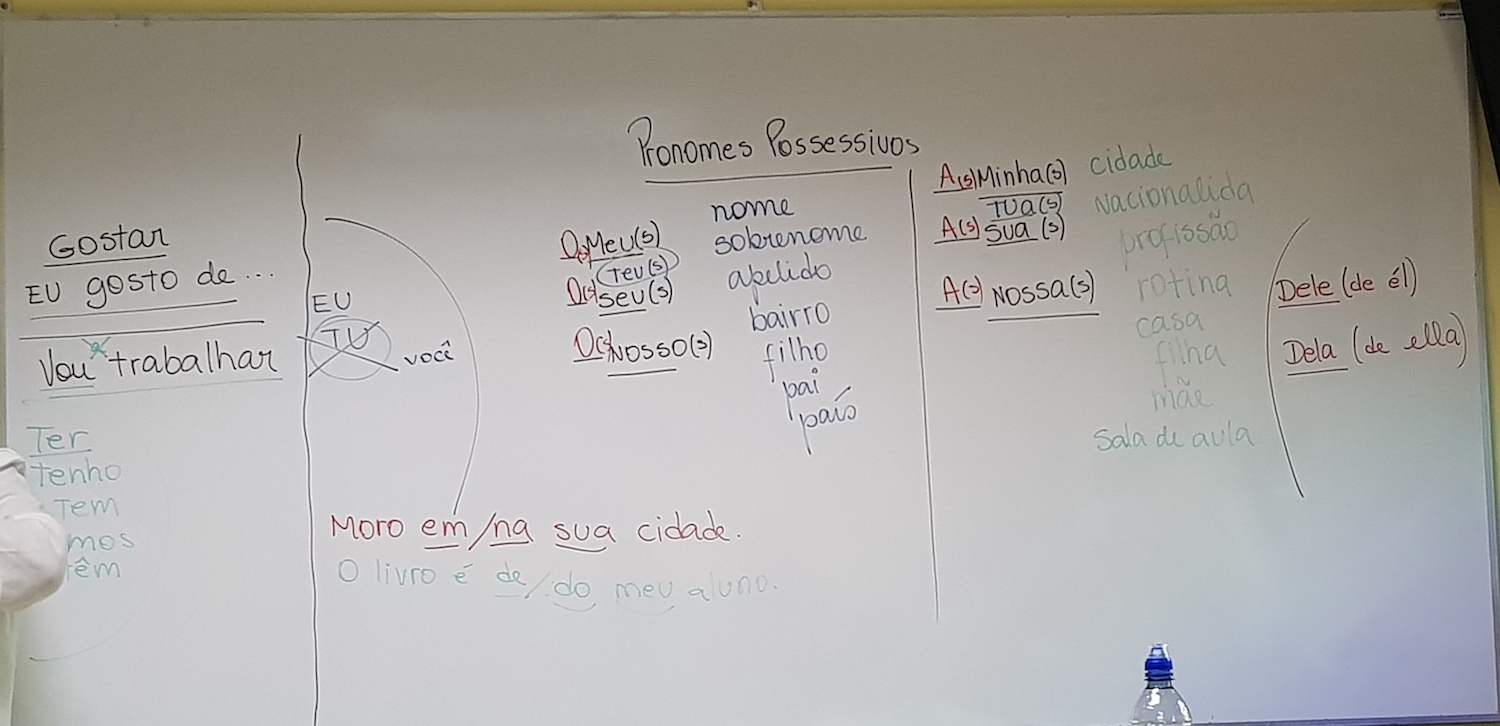 Gostar
EU gosto de...
Vou x trabalhar
Ter
Tenho
Tem
mos
êm
EU
TU
você
Pronomes Possessivos
O(s) Meu(s)
Teu(s)
O(s) seu(s)
O(s) Nosso(s)
nome
sobrenome
apelido
bairro
filho
pai
país
A(s) Minha(s)
TUa(s)
A(s) sua(s)
A(s) Nossa(s)
cidade
Nacionalida
profissão
rotina
casa
filha
mãe
Sala de aula
Dele (de él)
Dela (de ella)
Moro em/na sua cidade.
O livro é de/do meu aluno.